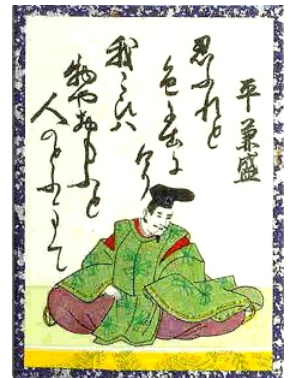 平兼盛
忍ふれと
色に出に
けり
我こひハ
物やおもふと
人のとふまて